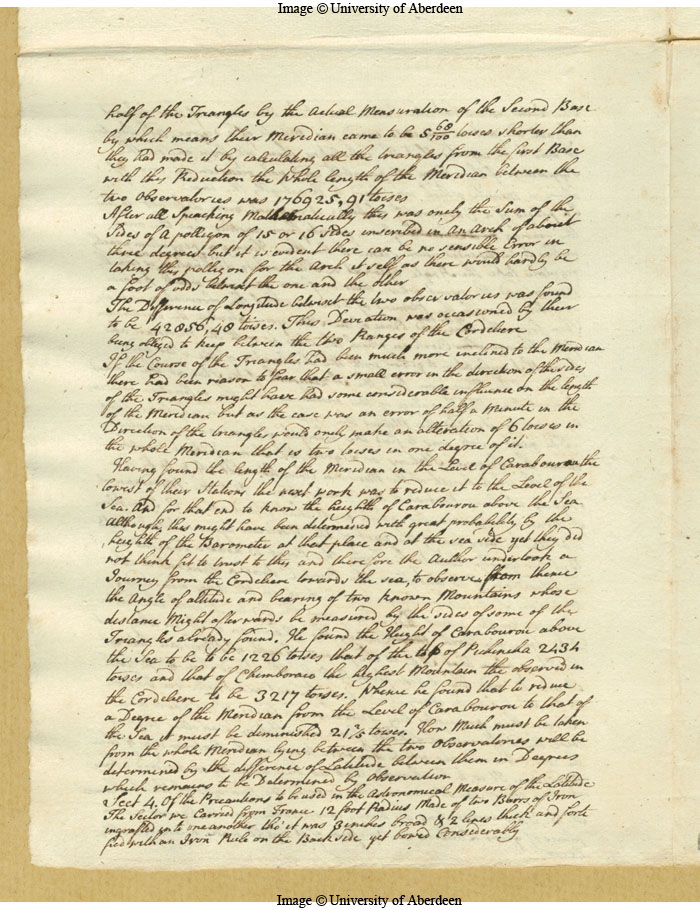 Image © University of Aberdeen
half of the Triangles by the Actual Mensuration of the Second Base
by which means their Meridian came to be 5 68/100 toises shorter than
they had made it by calculating all the triangles from the first Base
with this Reduction the whole length of the Meridian between the
two Observatories was 176925,91 toises
After all Speaking Mathematically this was onely the Sum of the
Sides of a polligon of 15 or 16 Sides inscribed in An Arch of about
three degrees but it is evident there can be no sensible Error in
taking this polligon for the Arch itself as there would hardly be
a foot of odds betwixt the one and the other
The Difference of Longitude betwixt the two observatories was found
to be 42856,48 toises. This Deviation was occasioned by their
being obliged to keep between the two Ranges of the Cordeliere
If the Course of the Triangles had been much more inclined to the Meridian
there had been reason to fear that a small error in the direction of the sides
of the Triangles might have had some considerable influence on the length
of the Meridian but as the case was an error of half a Minute in the
Direction of the triangles would only make an alteration of 6 toises in
the whole Meridian that is two toises in one degree of it.
Having found the length of the Meridian in the Level of Carabourou the
lowest of their Stations the next work was to reduce it to the Level of the
Sea. And for that end to know the heighth of Carabourou above the Sea
Although this might have been determined with great probability by the
heighth of the Barometer at that place and at the sea side yet they did
not think fit to trust to this and therefore the Author undertook a
Journey from the Cordeliere towards the sea, to observe from thence
the Angle of altitude and bearing of two known Mountains whose
distance Might afterwards be measured by the sides of some of the
Triangles already found. He found the Height of Carabourou above
the Sea to be to be 1226 toises that of the top of Pichincha 2434
toises and that of Chemboraco the highest Mountain the observed in
the Cordeliere to be 3217 toises. Whence he found that to reduce
a Degree of the Meridian from the Level of Carabourou to that of
the Sea it must be diminished 21 2/3 toises. How Much must be taken
from the whole Meridian lying between the two Observatories will be
determined by the difference of Latitude between them in Degrees
which remains to be Determined by Observation
Sect 4. Of the Precautions to be used in the Astronomical Measure of the Latitude
The Sector we Carried from France 12 foot Radius Made of two Barrs of Iron
ingrafted on to one another tho' it was 3 inches broad & 2 lines thick and forti
fied with an Iron Rule on the Back side yet bowed Considerably
Image © University of Aberdeen